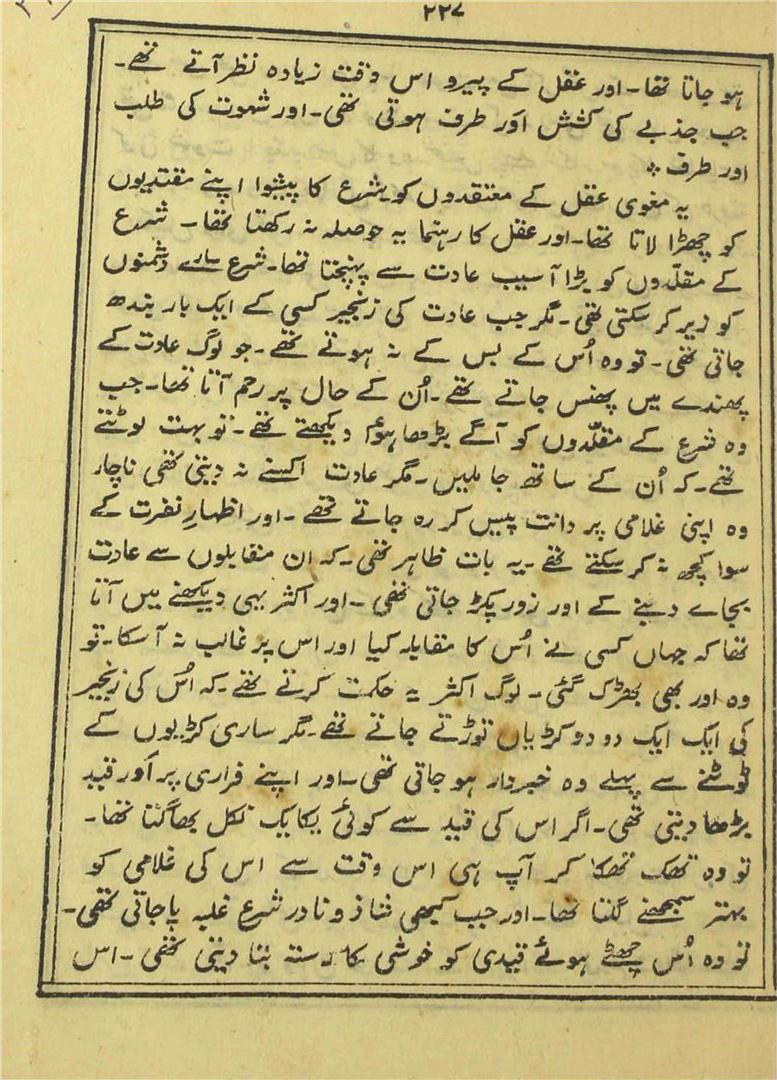 ۲۲۷
ہو جاتا تھا۔ اور عقل کے پیرو اس وقت زیادہ نظر آتے تھے۔
جب جذبے کی کشش اَور طرف ہوتی تھی۔ اور شہوت کی طلب
اور طرف ؞
یہ مغوی عقل کے معتقدوں کو شرع کا پیشوا اپنے مقتدیوں
کو چھڑا لاتا تھا۔ اور عقل کا رہنما یہ حوصلہ نہ رکھتا تھا۔ شرع
کے مقلّدوں کو بڑا آسیب عادت سے پہنچتا تھا۔ شرع سارے دشمنوں
کو زیر کر سکتی تھی۔ مگر جب عادت کی زنجیر کسی کے ایک بار بندھ
جاتی تھی۔ تو وہ اُس کے بس کے نہ ہوتے تھے۔ جو لوگ عادت کے
پھندے میں پھنس جاتے تھے۔ اُن کے حال پر رحم آتا تھا۔ جب
وہ شرع کے مقلّدوں کو آگے بڑھا ہوُا دیکھتے تھے۔ تو بہت لوٹتے
تھے۔ کہ اُن کے ساتھ جا ملیں۔ مگر عادت اکسنے نہ دیتی تھی ناچار
وہ اپنی غلامی پر دانت پیس کر رہ جاتے تھے۔ اور اظہارِ نفرت کے
سوا کچھ نہ کر سکتے تھے۔ یہ بات ظاہر تھی۔ کہ ان مقابلوں سے عادت
بجاے دبنے کے اور زور پکڑ جاتی تھی۔ اور اکثر یہی دیکھنے میں آتا
تھا کہ جہاں کسی نے اُس کا مقابلہ کیا اور اس پر غالب نہ آ سکا۔ تو
وہ اور بھی بھڑک گئی۔ لوگ اکثر یہ حکمت کرتے تھے۔ کہ اُس کی زنجیر
کی ایک ایک دو دو کڑیاں توڑتے جاتے تھے۔ مگر ساری کڑیوں کے
ٹوٹنے سے پہلے وہ خبردار ہو جاتی تھی۔ اور اپنے فراری پر اَور قید
بڑھا دیتی تھی۔ اگر اس کی قید سے کوئی یکایک نکل بھاگتا تھا۔
تو وہ تھک تھکا کر آپ ہی اس وقت سے اس کی غلامی کو
بہتر سمجھنے لگتا تھا۔ اور جب کبھی شاذ و نادر شرع غلبہ پا جاتی تھی۔
تو وہ اُس چھٹے ہوئے قیدی کو خوشی کا رستہ بتا دیتی تھی۔ اس